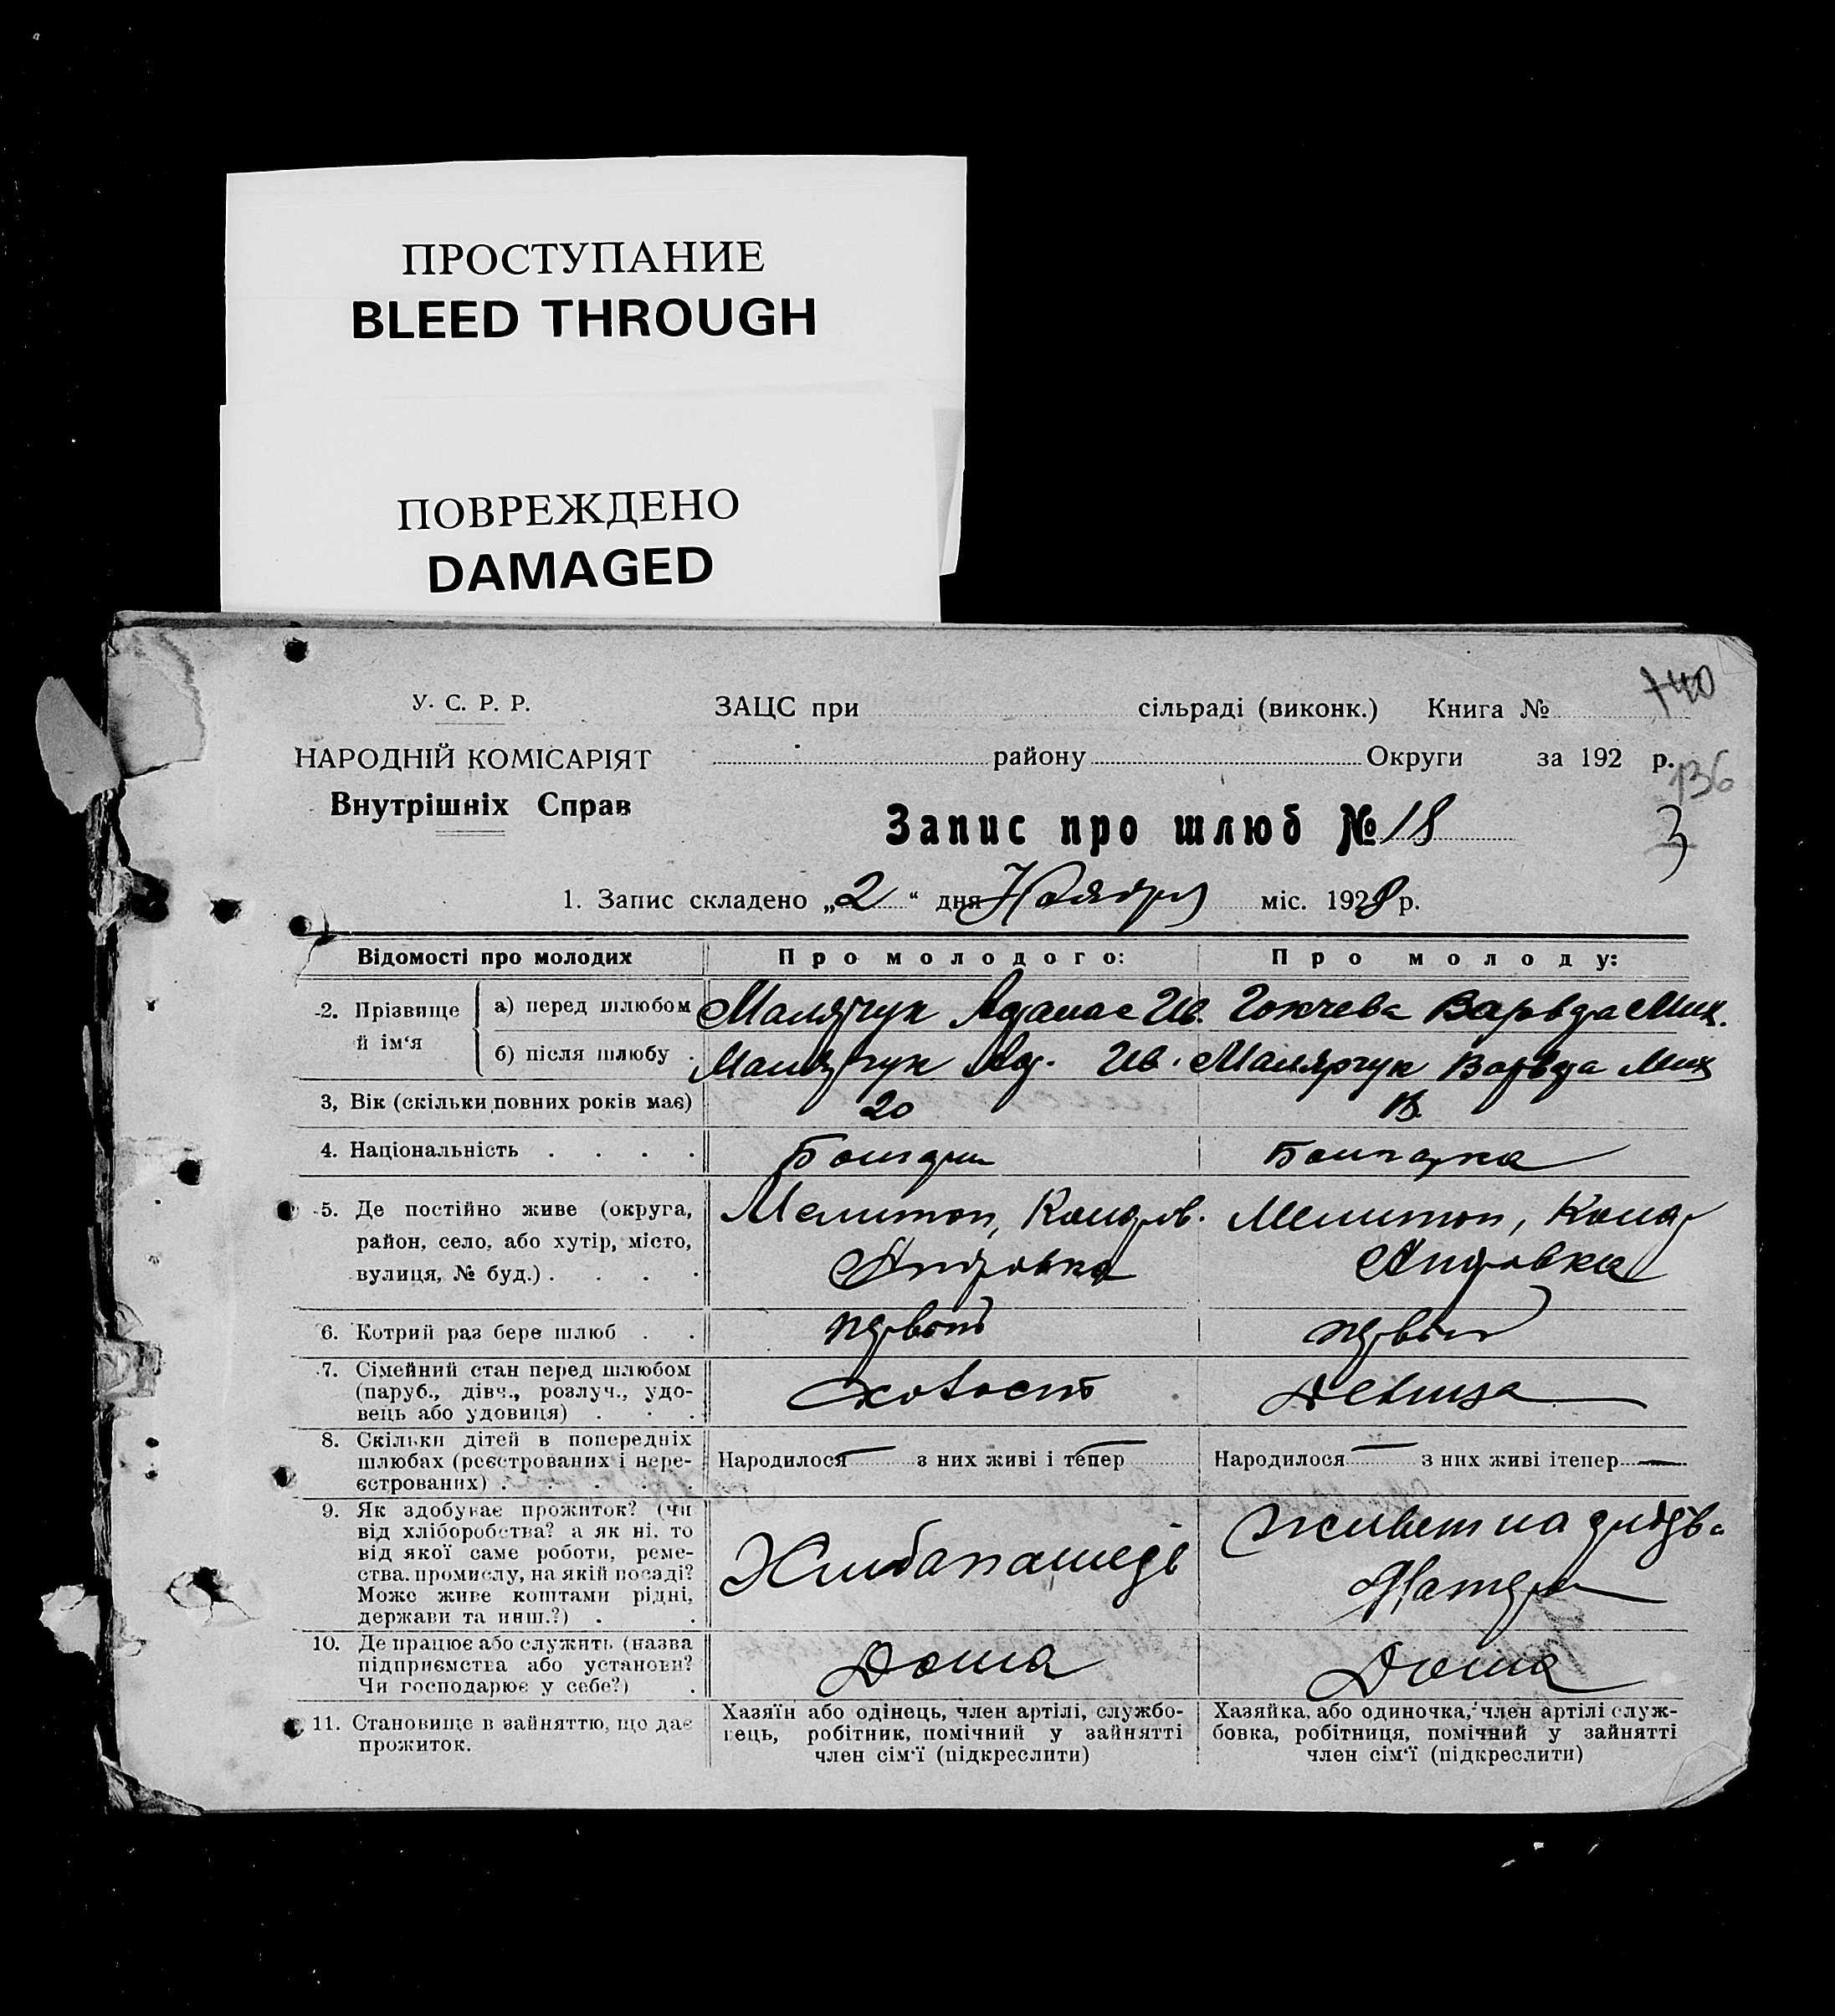 ПРОСТУПАНИЕ
BLEED THROUGH
ПОВРЕЖДЕНО
DAMAGED
140
У. С. Р. Р.
ЗАЦС при сільраді (виконк.) Книга №
НАРОДНІЙ КОМІСАРІЯТ
району Округи за 192 р.
136
Внутрішніх Справ
Запис про шлюб № 18
3
1. Запис складено „2“ дня Ноября міс. 1928 р.
Відомості про молодих
Про молодого:
Про молоду:
2. Прізвище й ім‘я
а) перед шлюбом
Малярчук Ив.
Варвара Мих.
б) після шлюбу .
Малярчук Ив.
Малярчук Варвара Мих
3, Вік (скільки повних років має)
20
18
4. Національність . . . .
Болгарин
Болгарка
5. Де постійно живе (округа,
район, село, або хутір, місто,
вулиця, № буд.) . . . .
Мелитоп,
Мелитоп,
6. Котрий раз бере шлюб . .
первый
первый
7. Сімейний стан перед шлюбом
(паруб., дівч., розлуч., удо-
вець або удовиця) . . .
Холост
Девица
8. Скільки дітей в попередніх
шлюбах (реєстрованих і нере-
єстрованих) . . . . .
Народилося — з них живі і тепер —
Народилося — з них живі ітепер —
9. Як здобуває прожиток? (Чи
від хліборобства? а як ні, то
від якої саме роботи, реме-
ства, промислу, на якій посаді?
Може живе коштами рідні,
держави та инш.?) . .
живет на
10. Де працює або служить (назва
підприємства або установи?
Чи господарює у себе?) .
Дома
Дома
11. Становище в зайняттю, що дає
прожиток.
Хазяїн або одінець, член артілі, службо-
вець, робітник, помічний у зайнятті
член сім‘ї (підкреслити)
Хазяйка, або одиночка, член артілі служ-
бовка, робітниця, помічний у зайнятті
член сім‘ї (підкреслити)